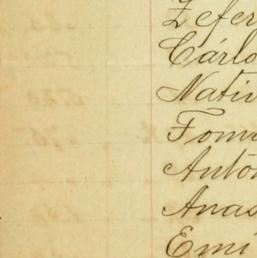 Zefer
Cárlo
Nativ
Tom
Antón
Anas
Emi